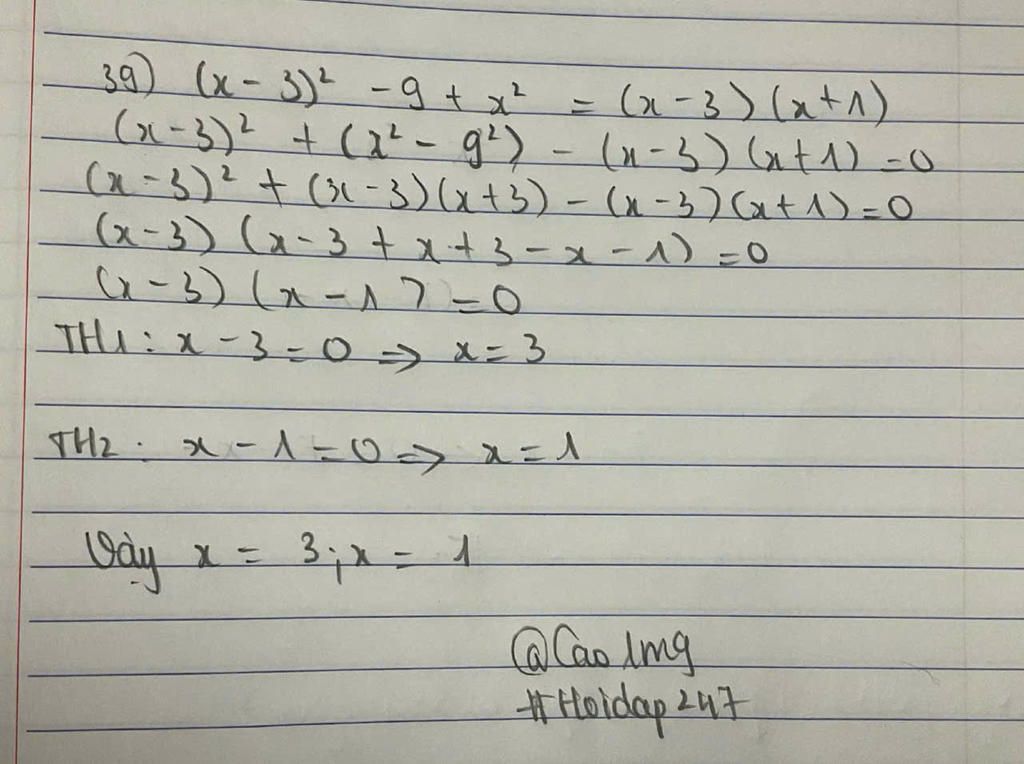 39) (x - 3)² - 9 + x² = (x - 3) (x + 1)
(x - 3)² + (x² - 9²) - (x - 3) (x + 1) = 0
(x - 3)² + (x - 3) (x + 3) - (x - 3) (x + 1) = 0
(x - 3) (x - 3 + x + 3 - x - 1) = 0
(x - 3) (x - 1) = 0
TH1: x - 3 = 0 => x = 3
TH2: x - 1 = 0 => x = 1
Vậy x = 3; x = 1
@Cao1mg
#Hoidap247